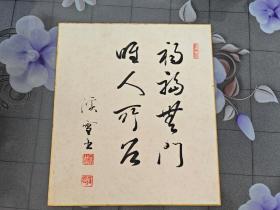 禍福無門
唯人所召